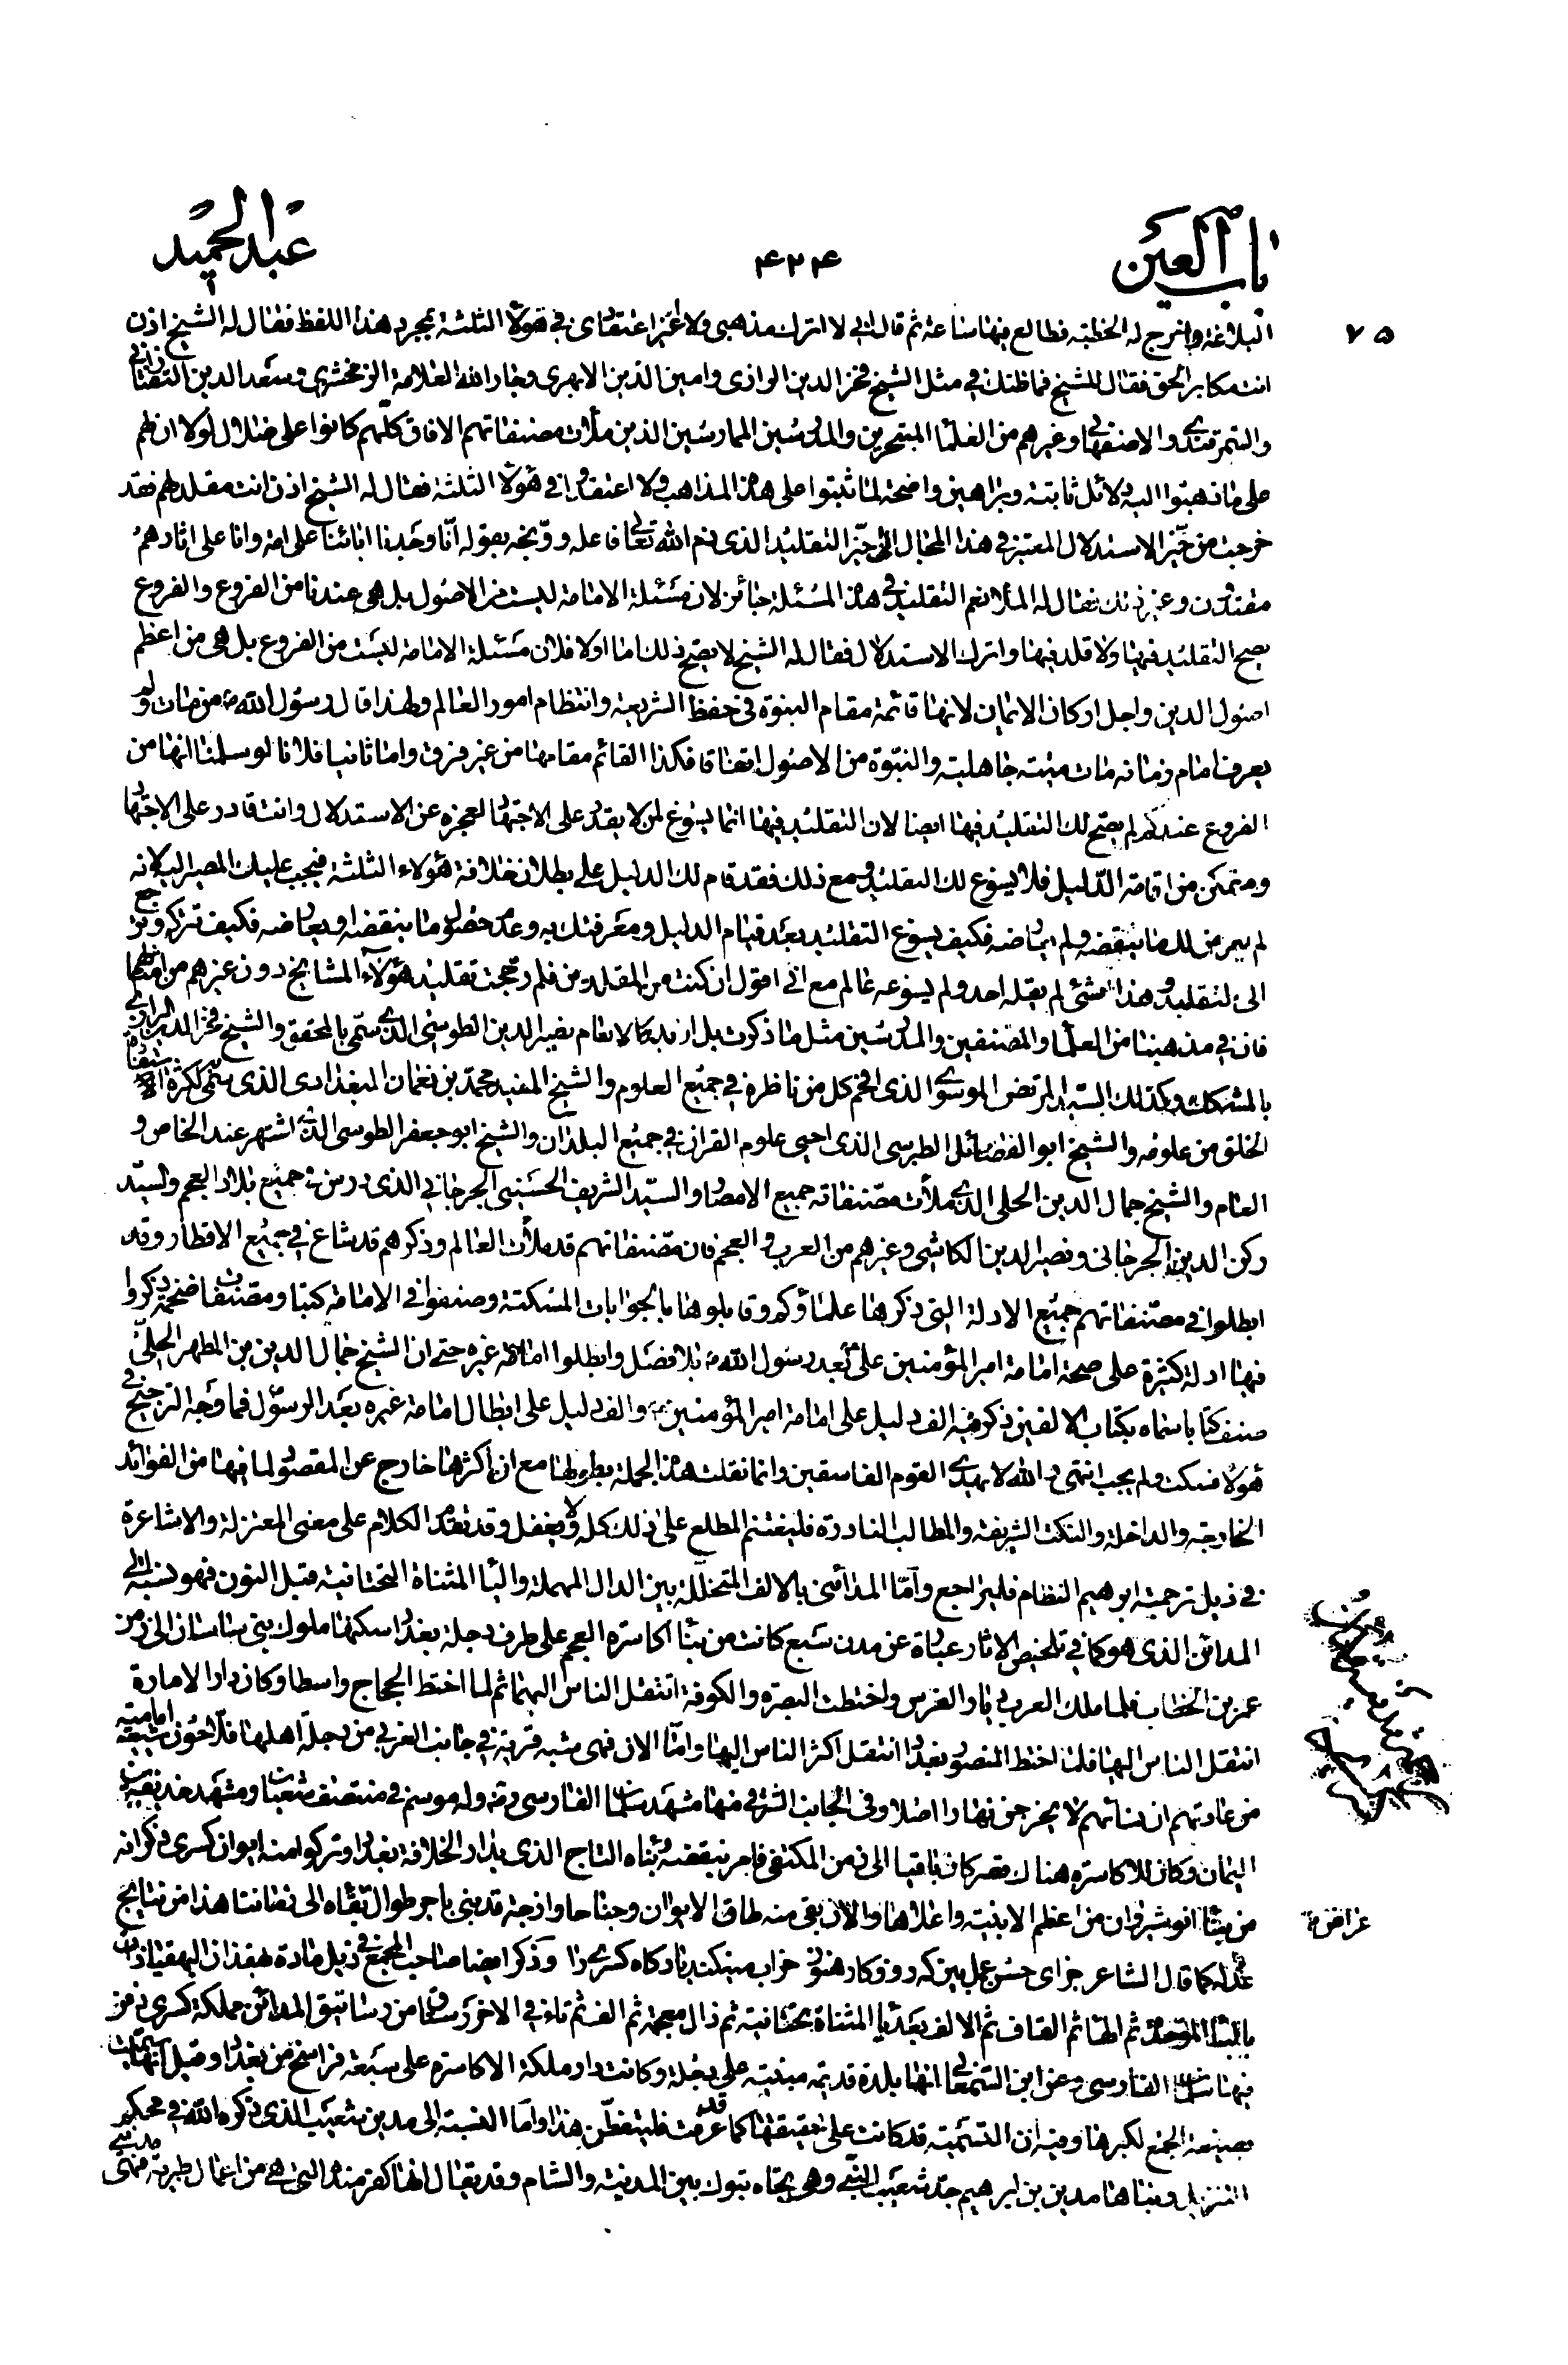 باب العين
۴۲۴
عبد الحميد
۷۵
البلاغة واخرج له الخطبة فطالع فيها ساعة ثم قال انى لا اترك مذهبى ولا اغير اعتقادى في هؤلاء الثلثة بمجرد هذا اللفظ فقال له الشيخ اذن
انت مكابر الحق فقال للشيخ فما ظنك في مثل الشيخ فخر الدين الرازى وامين الدين الابهرى وجار الله العلامة الزمخشرى وسعد الدين التفتازانى
والسمرقندى والاصفهانى وغيرهم من العلماء المتبحرين والمدرسين الممارسين الذين ملأت مصنفاتهم الافاق كلهم كانوا على ضلال لولا ان ظهر
على ما ذهبوا اليه دلائل ثابتة وبراهين واضحة لما ثبتوا على هذه المذاهب ولا اعتقدوا في هؤلاء الثلثة فقال له الشيخ اذن انت مقلدهم فقد
خرجت من حيّز الاستدلال المعتبر في هذا المجال الى حيّز التقليد الذى ذم الله تعالى فاعله ووبّخه بقوله انّا وجدنا ابائنا على امة وانا على اثارهم
مقتدون وغير ذلك فقال له الملا نعم التقليد في هذه المسئلة جائز لان مسئلة الامامة ليست من الاصول بل هى عندنا من الفروع والفروع
يصح التقليد فيها ولاقلد فيها واترك الاستدلال فقال له الشيخ لا يصح ذلك اما اولا فلان مسئلة الامامة ليست من الفروع بل هى من اعظم
اصول الدين واجل اركان الايمان لانها قائمة مقام النبوة في حفظ الشريعة وانتظام امور العالم ولهذا قال رسول الله ص من مات ولم
يعرف امام زمانه مات ميتة جاهلية والنبّوة من الاصول اتفاقا فكذا القائم مقامها من غير فرق واما ثانيا فلانا لو سلمنا انها من
الفروع عندكم لم يصح لك التقليد فيها ايضا لان التقليد فيها انما يسوغ لمن لا يقدر على الاجتهاد لعجزه عن الاستدلال وانت قادر على الاجتهاد
ومتمكن من اقامة الدّليل فلا يسوغ لك التقليد ومع ذلك فقد قام لك الدليل على بطلان خلافة هؤلاء الثلثة فيجب عليك المصير اليه لانه
لم يبرمن لك ما ينقضه ولم يعارضه فكيف يسوغ التقليد بعد قيام الدليل ومعرفتك به وعدم حصول ما ينقضه او يعارضه فكيف تتركه وترجع
الى التقليد وهذا شئ لم يقله احد ولم يسوغه عالم مع انى اقول ان كنت من المقلدين فلم رجحت تقليد هؤلاء المشايخ دون غيرهم من امثالهم
فان في مذهبنا من العلماء والمصنفين والمدرسين مثل ما ذكرت بل ازيد كالامام نصير الدين الطوسى الذى سمّى بالمحقق والشيخ فخر الدين الرازى
بالمشكك وكذلك السيد المرتضى الموسوى الذى افحم كل من ناظره في جميع العلوم والشيخ المفيد محمد بن نعمان البغدادى الذى سمّى لكثرة استفادة
الخلق من علومه والشيخ ابو الفضائل الطبرسى الذى احيى علوم القران في جميع البلدان والشيخ ابو جعفر الطوسى الذى اشتهر عند الخاص و
العام والشيخ جمال الدين الحلى الذى ملأت مصنفاته جميع الامصار والسيّد الشريف الحسينى الجرجانى الذى درس في جميع بلاد العجم والسيّد
ركن الدين الجرجانى ونصير الدين الكاشى وغيرهم من العرب والعجم فان مصنفاتهم قد ملأت العالم وذكرهم قد شاع في جميع الاقطار وقد
ابطلوا في مصنفاتهم جميع الادلة التى ذكرها علماؤكم وقابلوها بالجوابات المسكتة وصنفوا في الامامة كتبا ومصنفات ضخمة ذكروا
فيها ادلة كثيرة على صحة امامة امير المؤمنين على بعد رسول الله ص بلا فصل وابطلوا امامة غيره حتى ان الشيخ جمال الدين بن المطهر الحلىّ
صنف كتابا سماه بكتاب الالفين ذكر فيه الف دليل على امامة امير المؤمنين والف دليل على ابطال امامة غيره بعد الرسول فما وجه الترجيح في
هؤلاء فسكت ولم يجب انتهى والله لا يهدى القوم الفاسقين وانما نقلت هذه الجملة بطولها مع ان اكثرها خارج عن المقصود لما فيها من الفوائد
الخارجة والداخلة والنكت الشريفة والمطالب النادرة فليغتنم المطلع على ذلك كله ولا يغفل وقد تقدم الكلام على معنى المعتزلة والاشاعرة
في ذيل ترجمة ابرهيم النظام فليراجع وامّا المدائنى بالالف المتخللة بين الدال المهملة والياء المثناة التحتانية قبل النون فهو نسبة الى
المدائن الذى هو كما في تلخيص الاثار عبارة عن مدن سبع كانت من بناء اكاسرة العجم على طرف دجلة بغداد سكنها ملوك بنى ساسان الى زمن
عمر بن الخطاب فلما ملك العرب ديار الفرس واختطت البصره والكوفة انتقل الناس اليهما ثم لما اختط الحجاج واسطا وكان دار الامارة
انتقل الناس اليها فلما اختط المنصور بغداد انتقل اكثر الناس اليها وامّا الان فهى شبه قرية في جانب الغربى من دجلة اهلها فلّاحون شيعة امامية
من عادتهم ان نسائهم لا يخرجن نهارا اصلا وفى الجانب الشرقى منها مشهد سلمان الفارسى رضه وله موسم في منتصف شعبان ومشهد حذيفة بن
اليمان وكان للاكاسره هناك قصر كان باقيا الى زمن المكتفى فامر بنقضه وبناه التاج الذى بدار الخلافة بغداد وتركوا منه ايوان كسرى ذكر انه
من بناء انوشيروان من اعظم الابنية واعلاها والان بقى منه طاق الايوان وجناحا وازجة قد بنى باجر طوال بقّاه الى زماننا هذا من نتايج
عدله كما قال الشاعر جزاى حسن عمل بين كه روزكار هنوز خراب مينكند باركاه كسرى را وذكر ايضا صاحب المجمع في ذيل مادة
بالباء الموحدة ثم الهاء ثم القاف ثم الالف بعد ياء المثناة تحتانية ثم ذال معجمة ثم الف ثم تاء في الاخر رستاق من رساتيق المدائن مملكة كسرى دفن
فيها سلمان الفارسى وعن ابن السمعانى انها بلدة قديمة مبنية على دجلة وكانت دار مملكة الاكاسره على سبعة فراسخ من بغداد وقيل انها سميّت
بصيغة الجمع لكبرها وفيه ان التسمية قد كانت على حقيقتها كما قد عرفت فليتفطّن هذا واما النسبة الى مدين شعيب الذى ذكره الله في محكم
التنزيل وبناها مدين بن ابرهيم جدّ شعيب النبى وهى تجاه تبوك بين المدينة والشام وقد يقال انها كفر منده التى هى من اعمال طبرية فهى مدينى